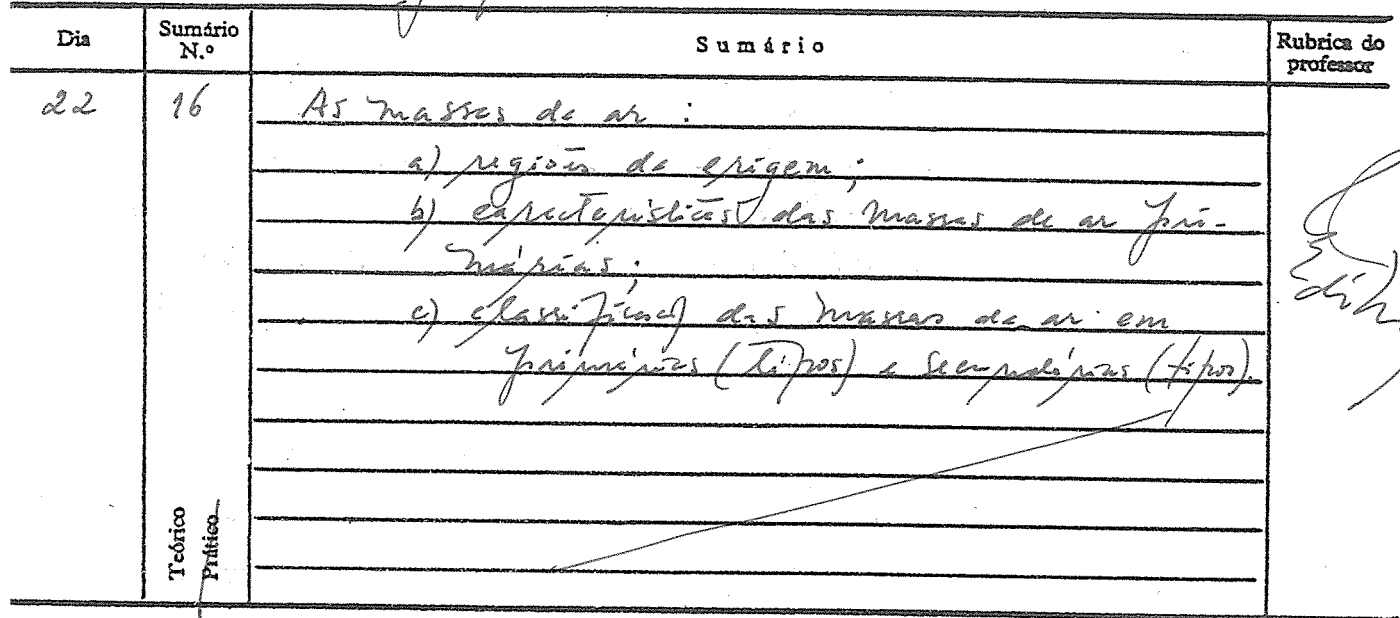 Dia
Sumário N.º
Sumário
Rubrica do professor
22
16
As massas de ar :
a) regiões de origem;
b) características das massas de ar pri-
márias;
c) classificação das massas de ar em
primárias (tipos) e secundárias (tipos).
Teórico
Prático